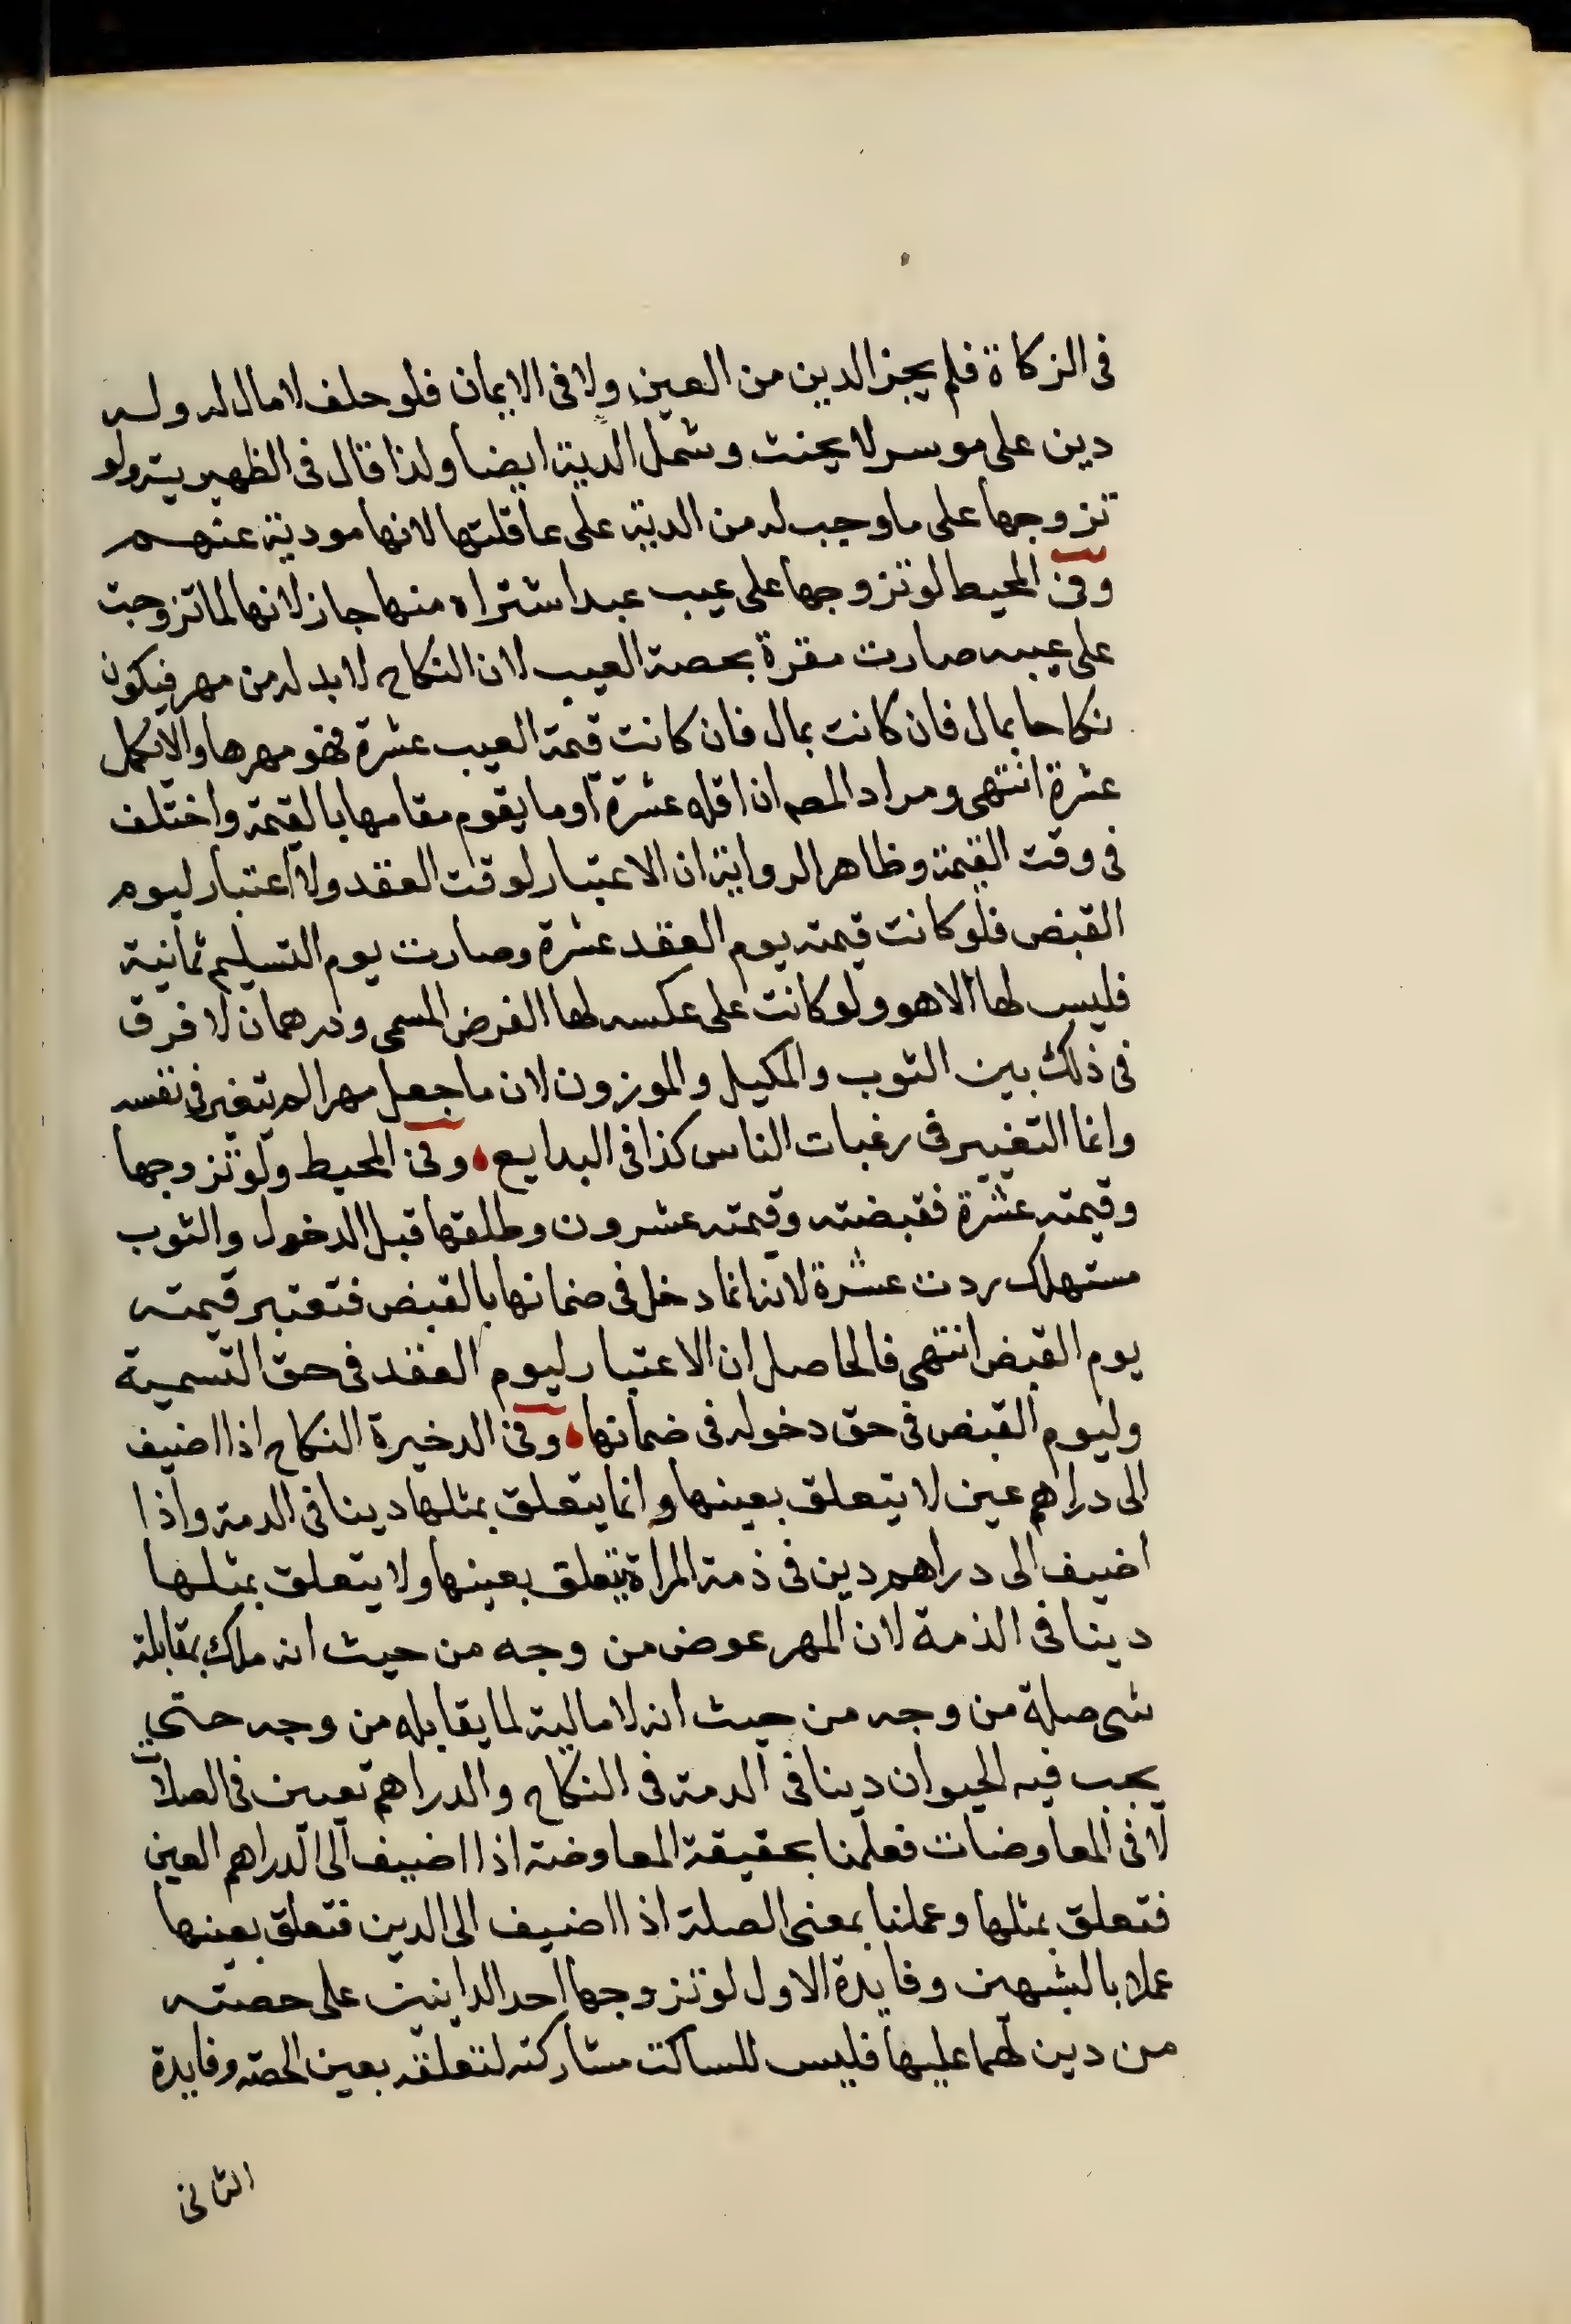 فى الزكاة فلم يجز الدين من العين ولا فى الايمان فلو حلف لا مال له وله
دين على موسر لا يحنث وشمل الدية ايضا ولذا قال فى الظهيرية ولو
تزوجها على ما وجب له من الدية على عاقلتها لانها مودية عنهم
وفى المحيط لو تزوجها على عيب عبد اشتراه منها جاز لانها لما تزوجت
على عيبه صارت مقرة بحصة العيب لان النكاح لا بد له من مهر فيكون
نكاحا بمال فان كانت بمال فان كانت قيمة العيب عشرة فهو مهرها والا يكمل
عشرة انتهى ومراد المصه ان اقله عشرة او ما يقوم مقامها بالقيمة واختلف
فى وقت القيمة وظاهر الرواية ان الاعتبار لوقت العقد ولا اعتبار ليوم
القبض فلو كانت قيمته يوم العقد عشرة وصارت يوم التسليم ثمانية
فليس لها الا هو ولو كانت على عكسه لها العرض المسمى ودرهمان لا فرق
فى ذلك بين الثوب والمكيل والموزون لان ما جعل مهرا لم يتغير فى نفسه
وانما التغيير فى رغبات الناس كذا فى البدايع وفى المحيط ولو تزوجها
وقيمته عشرة فقبضته وقيمته عشرون وطلقها قبل الدخول والثوب
مستهلك ردت عشرة لانه انما دخل فى ضمانها بالقبض فتعتبر قيمته
يوم القبض انتهى فالحاصل ان الاعتبار ليوم العقد فى حق التسمية
وليوم القبض فى حق دخوله فى ضمانها وفى الدخيرة النكاح اذا اضيف
الى دراهم عين لا يتعلق بعينها وانما يتعلق بمثلها دينا فى الدمة واذا
اضيف الى دراهم دين فى ذمة المراة يتعلق بعينها ولا يتعلق بمثلها
دينا فى الذمة لان المهر عوض من وجه من حيث انه ملك بمقابلة
شى صلة من وجه من حيث انه لا مالية لما يقابله من وجه حتى
يجب فيه الحيوان دينا فى الدمة فى النكاح والدراهم تعين فى الصلات
لا فى المعاوضات فعلمنا بحقيقة المعاوضة اذا اضييف الى الدراهم العين
فتعلق بمثلها وعملنا بمعنى الصلة اذا اضيف الى الدين فتعلق بعينها
عملا بالشبهين وفايدة الاول لو تزوجها احد الداينين على حصته
من دين لهما عليها فليس للساكت مشاركته لتعلقه بعين الحصة وفايدة
الثانى